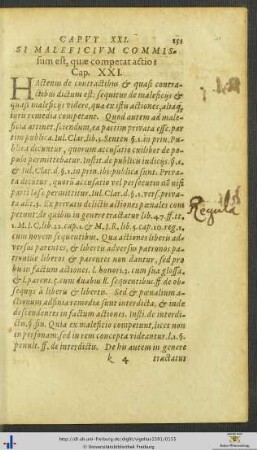 CAPVT XXI.
151
SI MALEFICIVM COMMIS-
sum est, quæ competat actio:
Cap. XXI.
HActenus de contractibus & quasi contra-
ctibus dictum est: sequitur de maleficijs &
quasi maleficijs videre, qua ex istis actiones, aliaq́;
iuris remedia competant. Quod autem ad male-
ficia attinet sciendum, ea partim privata esse, par
tim publica. Iul. Clar. lib. 5. Senten. §. 1. in prin. Pu-
blica dicuntur, quorum accusatio cuilibet de po-
pulo permittebatur. Instit. de publicu iudicijs. §. 1.
& Iul. Clar. d. §. 1. in prin. ibi publica sunt. Priva-
ta dicuntur, quorū accusatio vel persecutio nō nisi
parti læsæ permittitur. Iul. Clar. d. §. 1. vers. priva-
ta
Ex privatis delictis actiones pœnales com
petunt, de quibus in genere tractatur lib. 47. ff. tit.
1. M.I.C. lib. 22. cap. 1. & M.I.R. lib. 5. cap. 10. reg. 1.
cum novem sequentibus. Qua actiones liberis ad-
versus parentes, & libertis adversus patronos pa-
tronive liberos & parentes non dantur, sed pro
his in factum actiones. l. honori. 5. cum sua glossa,
& l. parens. 6. cum duabus ll. sequentibus. ff. de ob-
sequijs à liberis & libertis. Sed & pœnalium a-
ctionum adfinia remedia sunt interdicta, & inde
descendentes in factum actiones. Insti. de interdi-
ctis, §. fin. Quia ex maleficio competunt, licet non
in personam: sed in rem concepta videantur. l. 1. §.
penult. ff. de interdictis. De his autem in genere
k 4
tractatur
Regula
http://dl.ub.uni-freiburg.de/diglit/vigelius1591/0155
© Universitätsbibliothek Freiburg